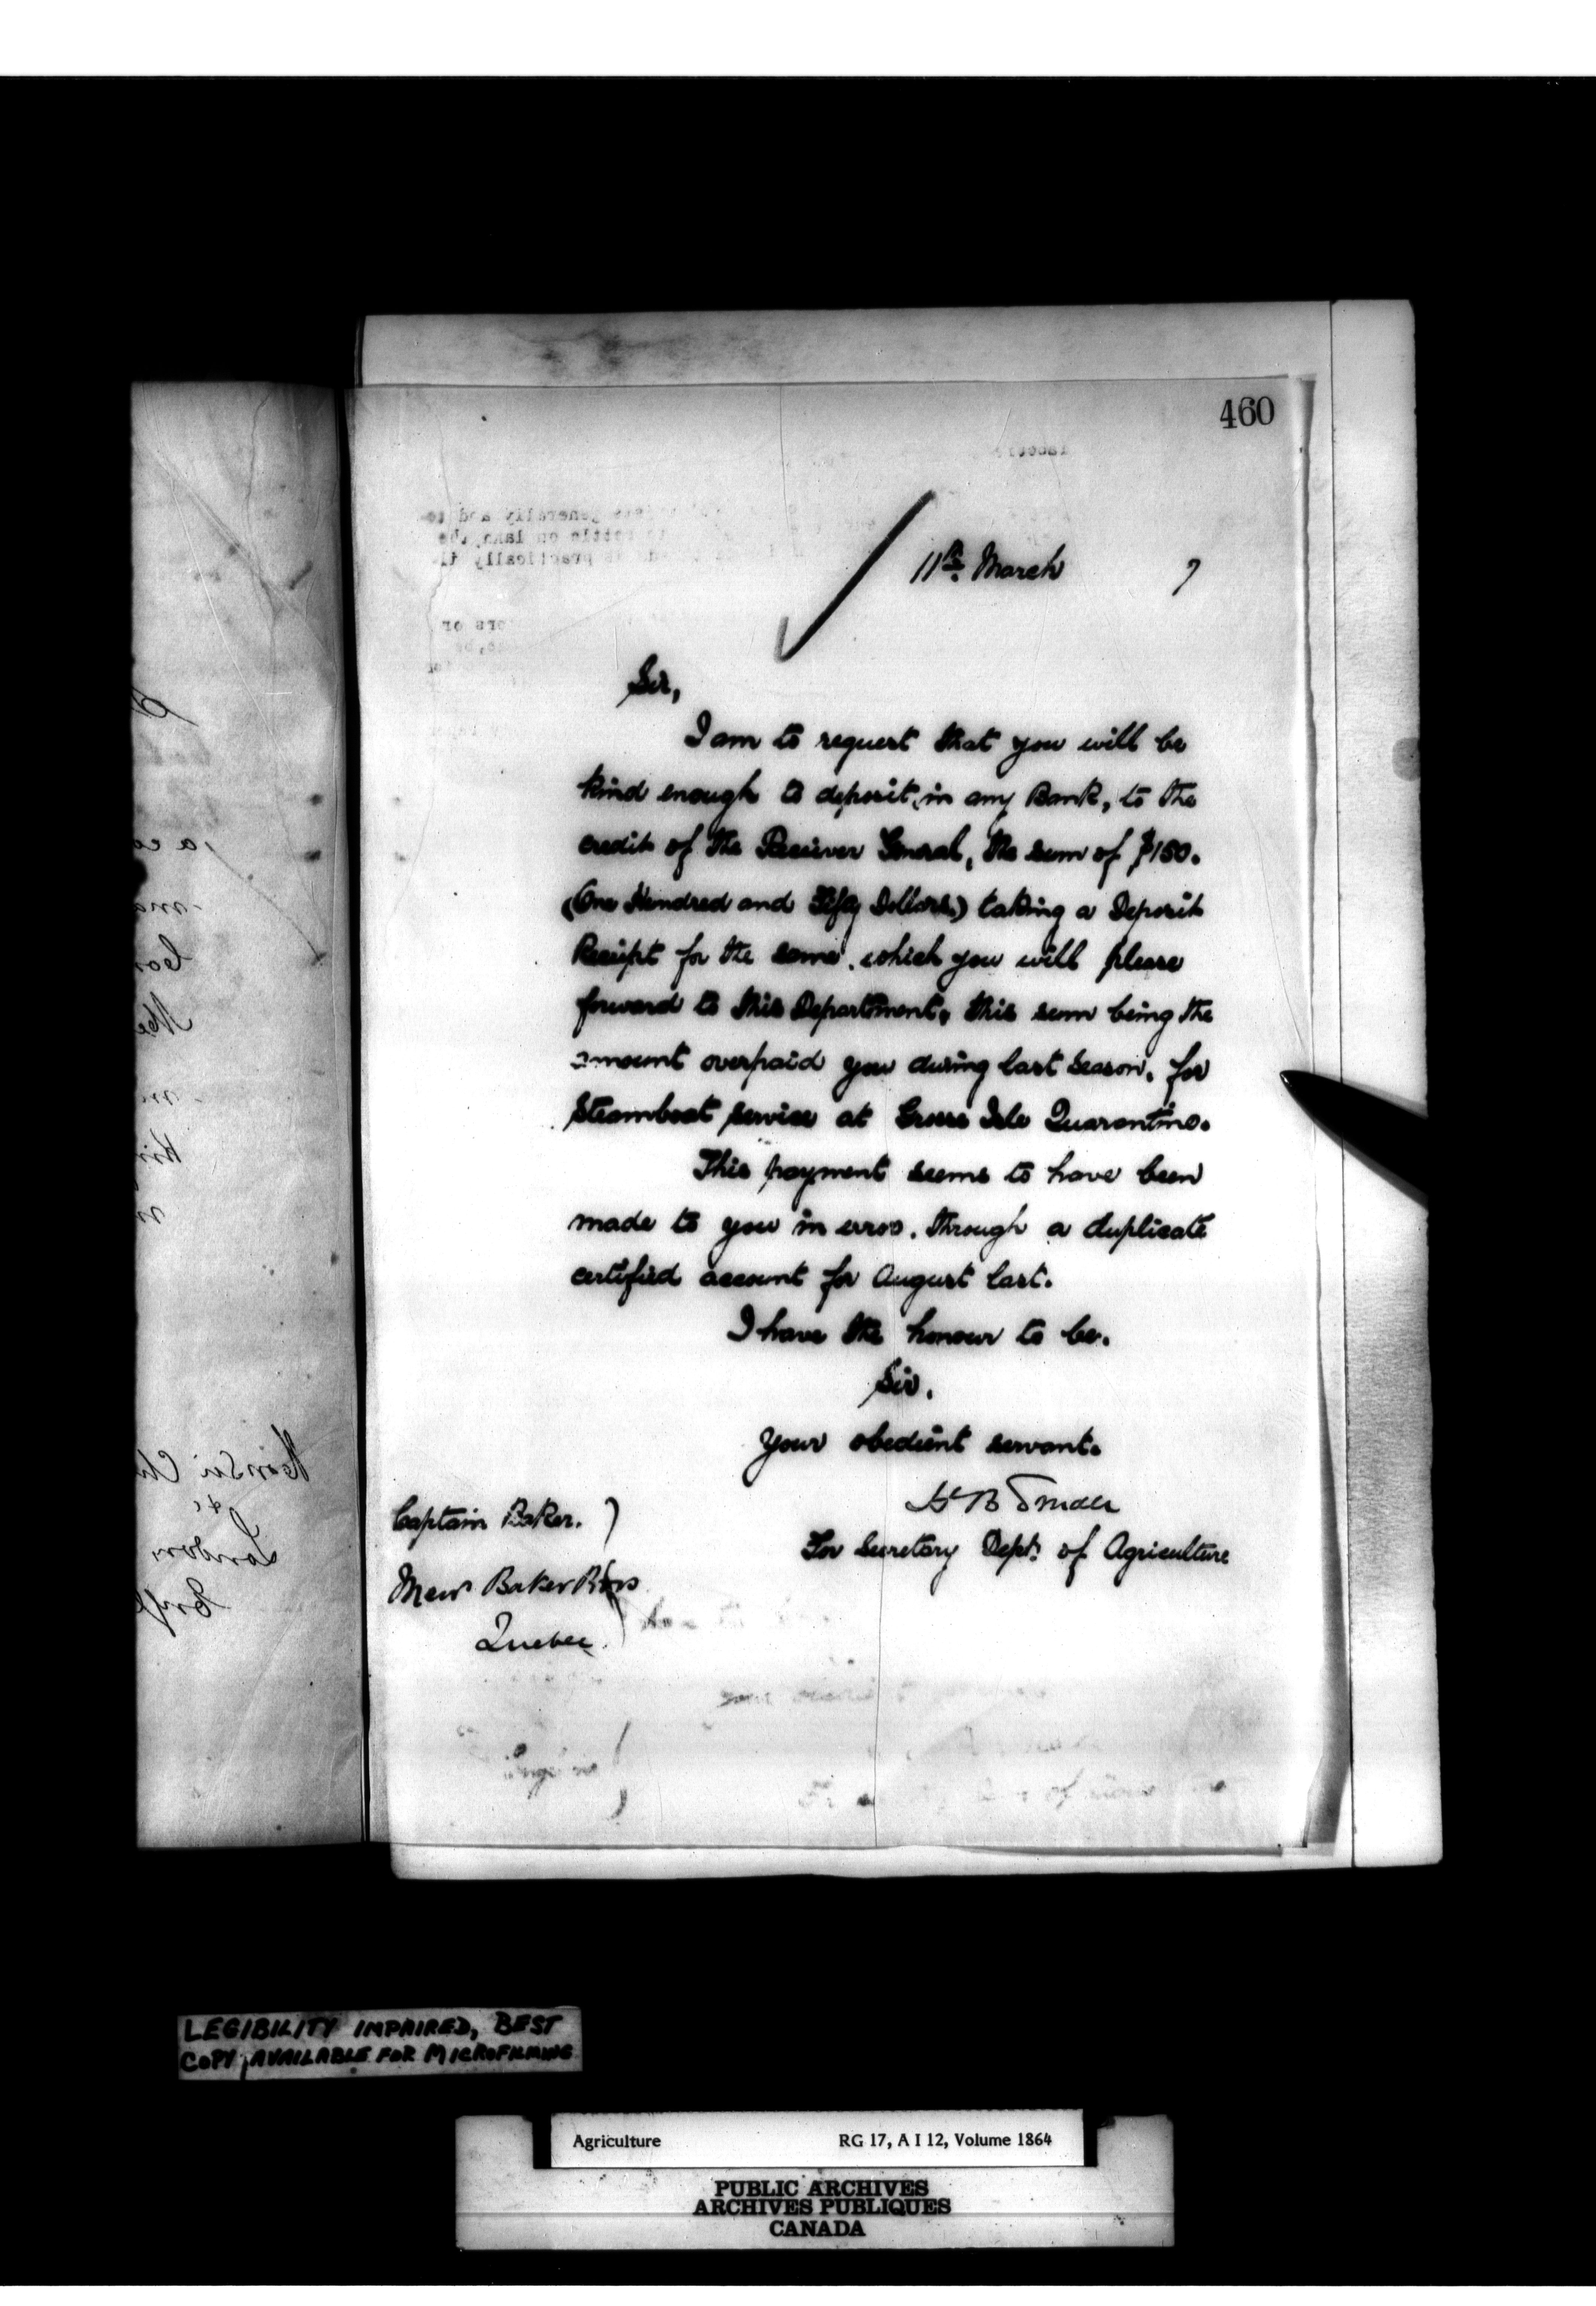 460
11th March 7
Sir,
I am to request that you will be
kind enough to deposit, in any Bank, to the
credit of the Receiver General, the sum of $150.
(One Hundred and Fifty Dollars) taking a Deposit
Receipt for the same, which you will please
forward to this Department, this sum being the
amount overpaid you during last season, for
Steamboat service at Grosse Isle Quarantine.
This payment seems to have been
made to you in error, through a duplicate
certified account for August last.
I have the honour to be,
Sir,
Your obedient servant.
H B Small
For Secretary Dept. of Agriculture
Captain Baker.
Messrs Baker Bros
Quebec.
LEGIBILITY IMPAIRED, BEST
COPY AVAILABLE FOR MICROFILMING
Agriculture RG 17, A I 12, Volume 1864
PUBLIC ARCHIVES
ARCHIVES PUBLIQUES
CANADA